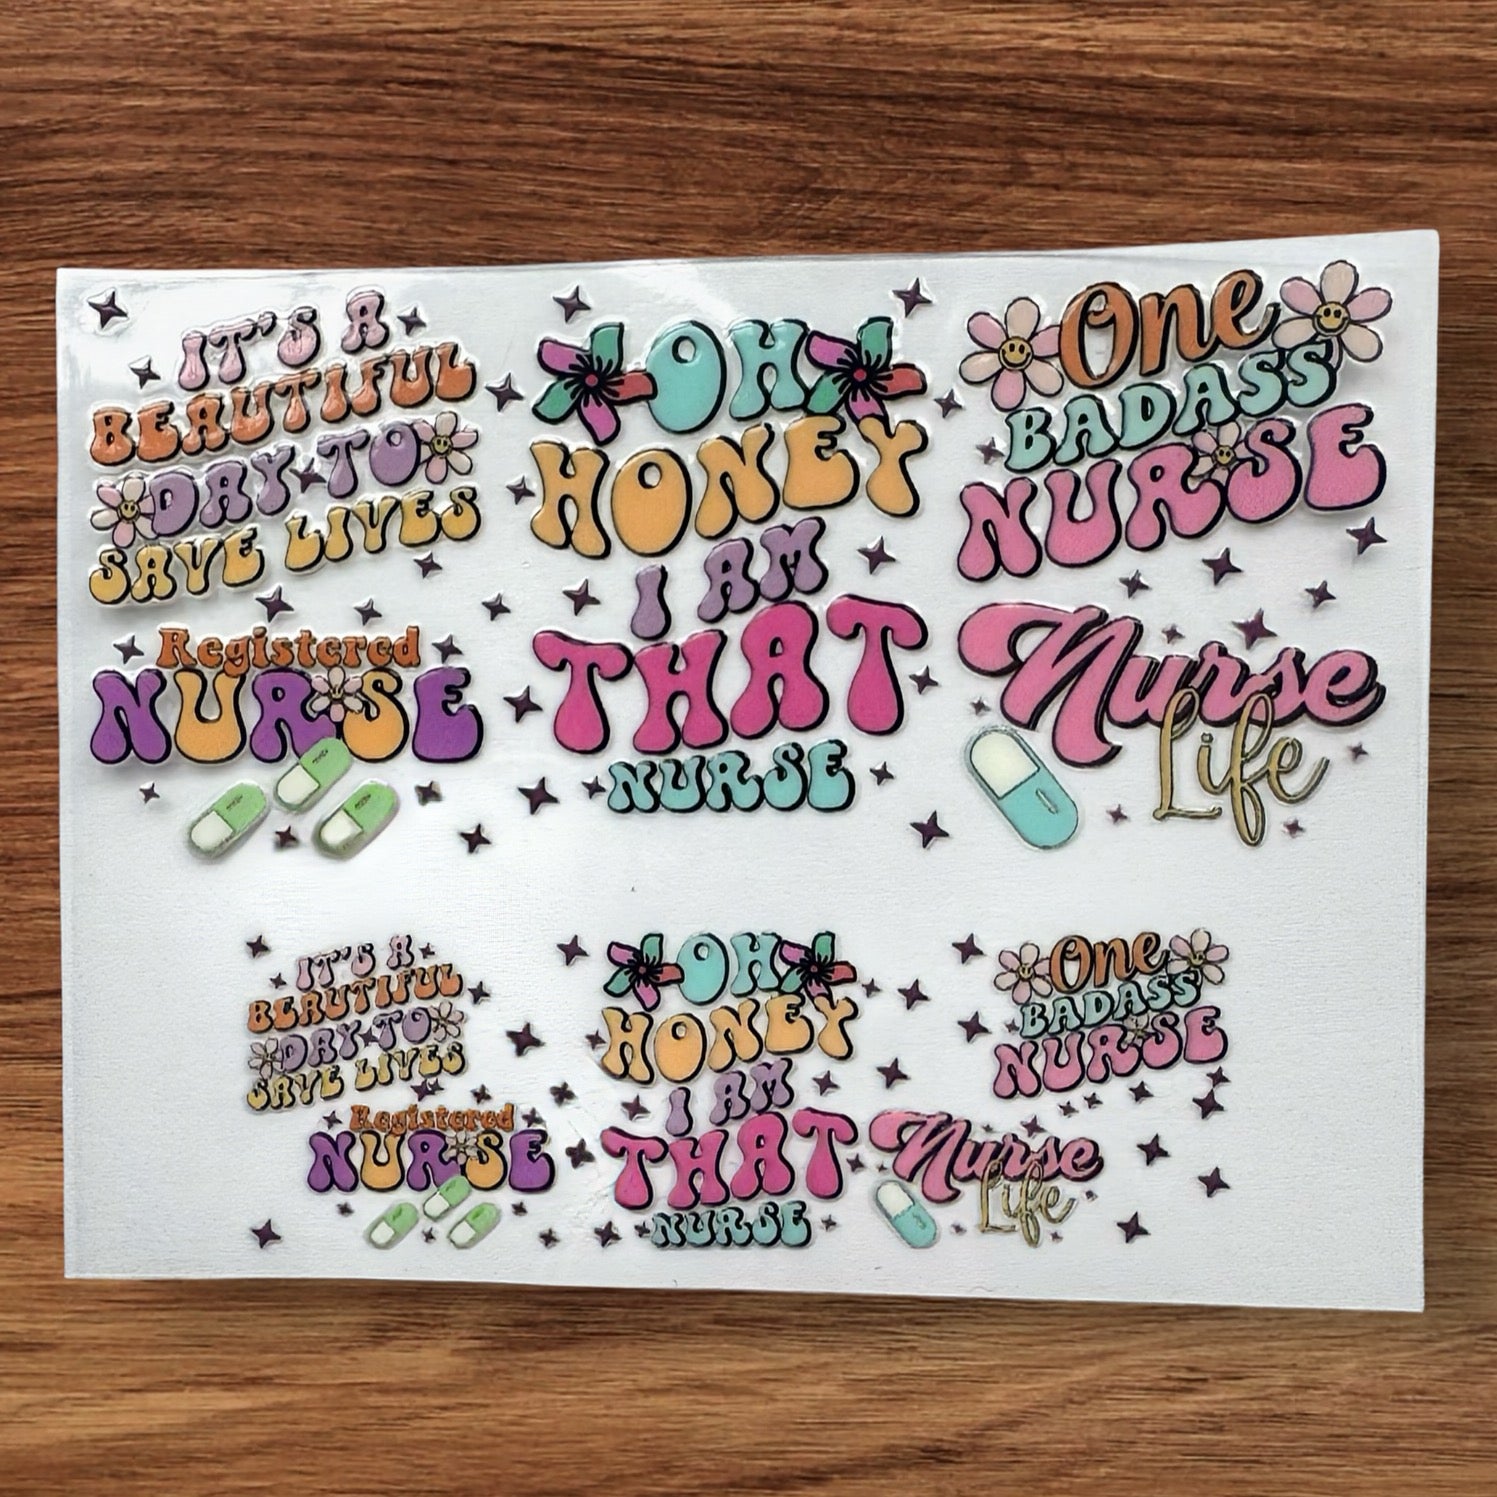 IT'S A
BEAUTIFUL
DAY TO
SAVE LIVES
OH
HONEY
I AM
THAT
NURSE
One
BADASS
NURSE
Registered
NURSE
Nurse
Life
IT'S A
BEAUTIFUL
DAY TO
SAVE LIVES
OH
HONEY
I AM
THAT
NURSE
One
BADASS
NURSE
Registered
NURSE
Nurse
Life